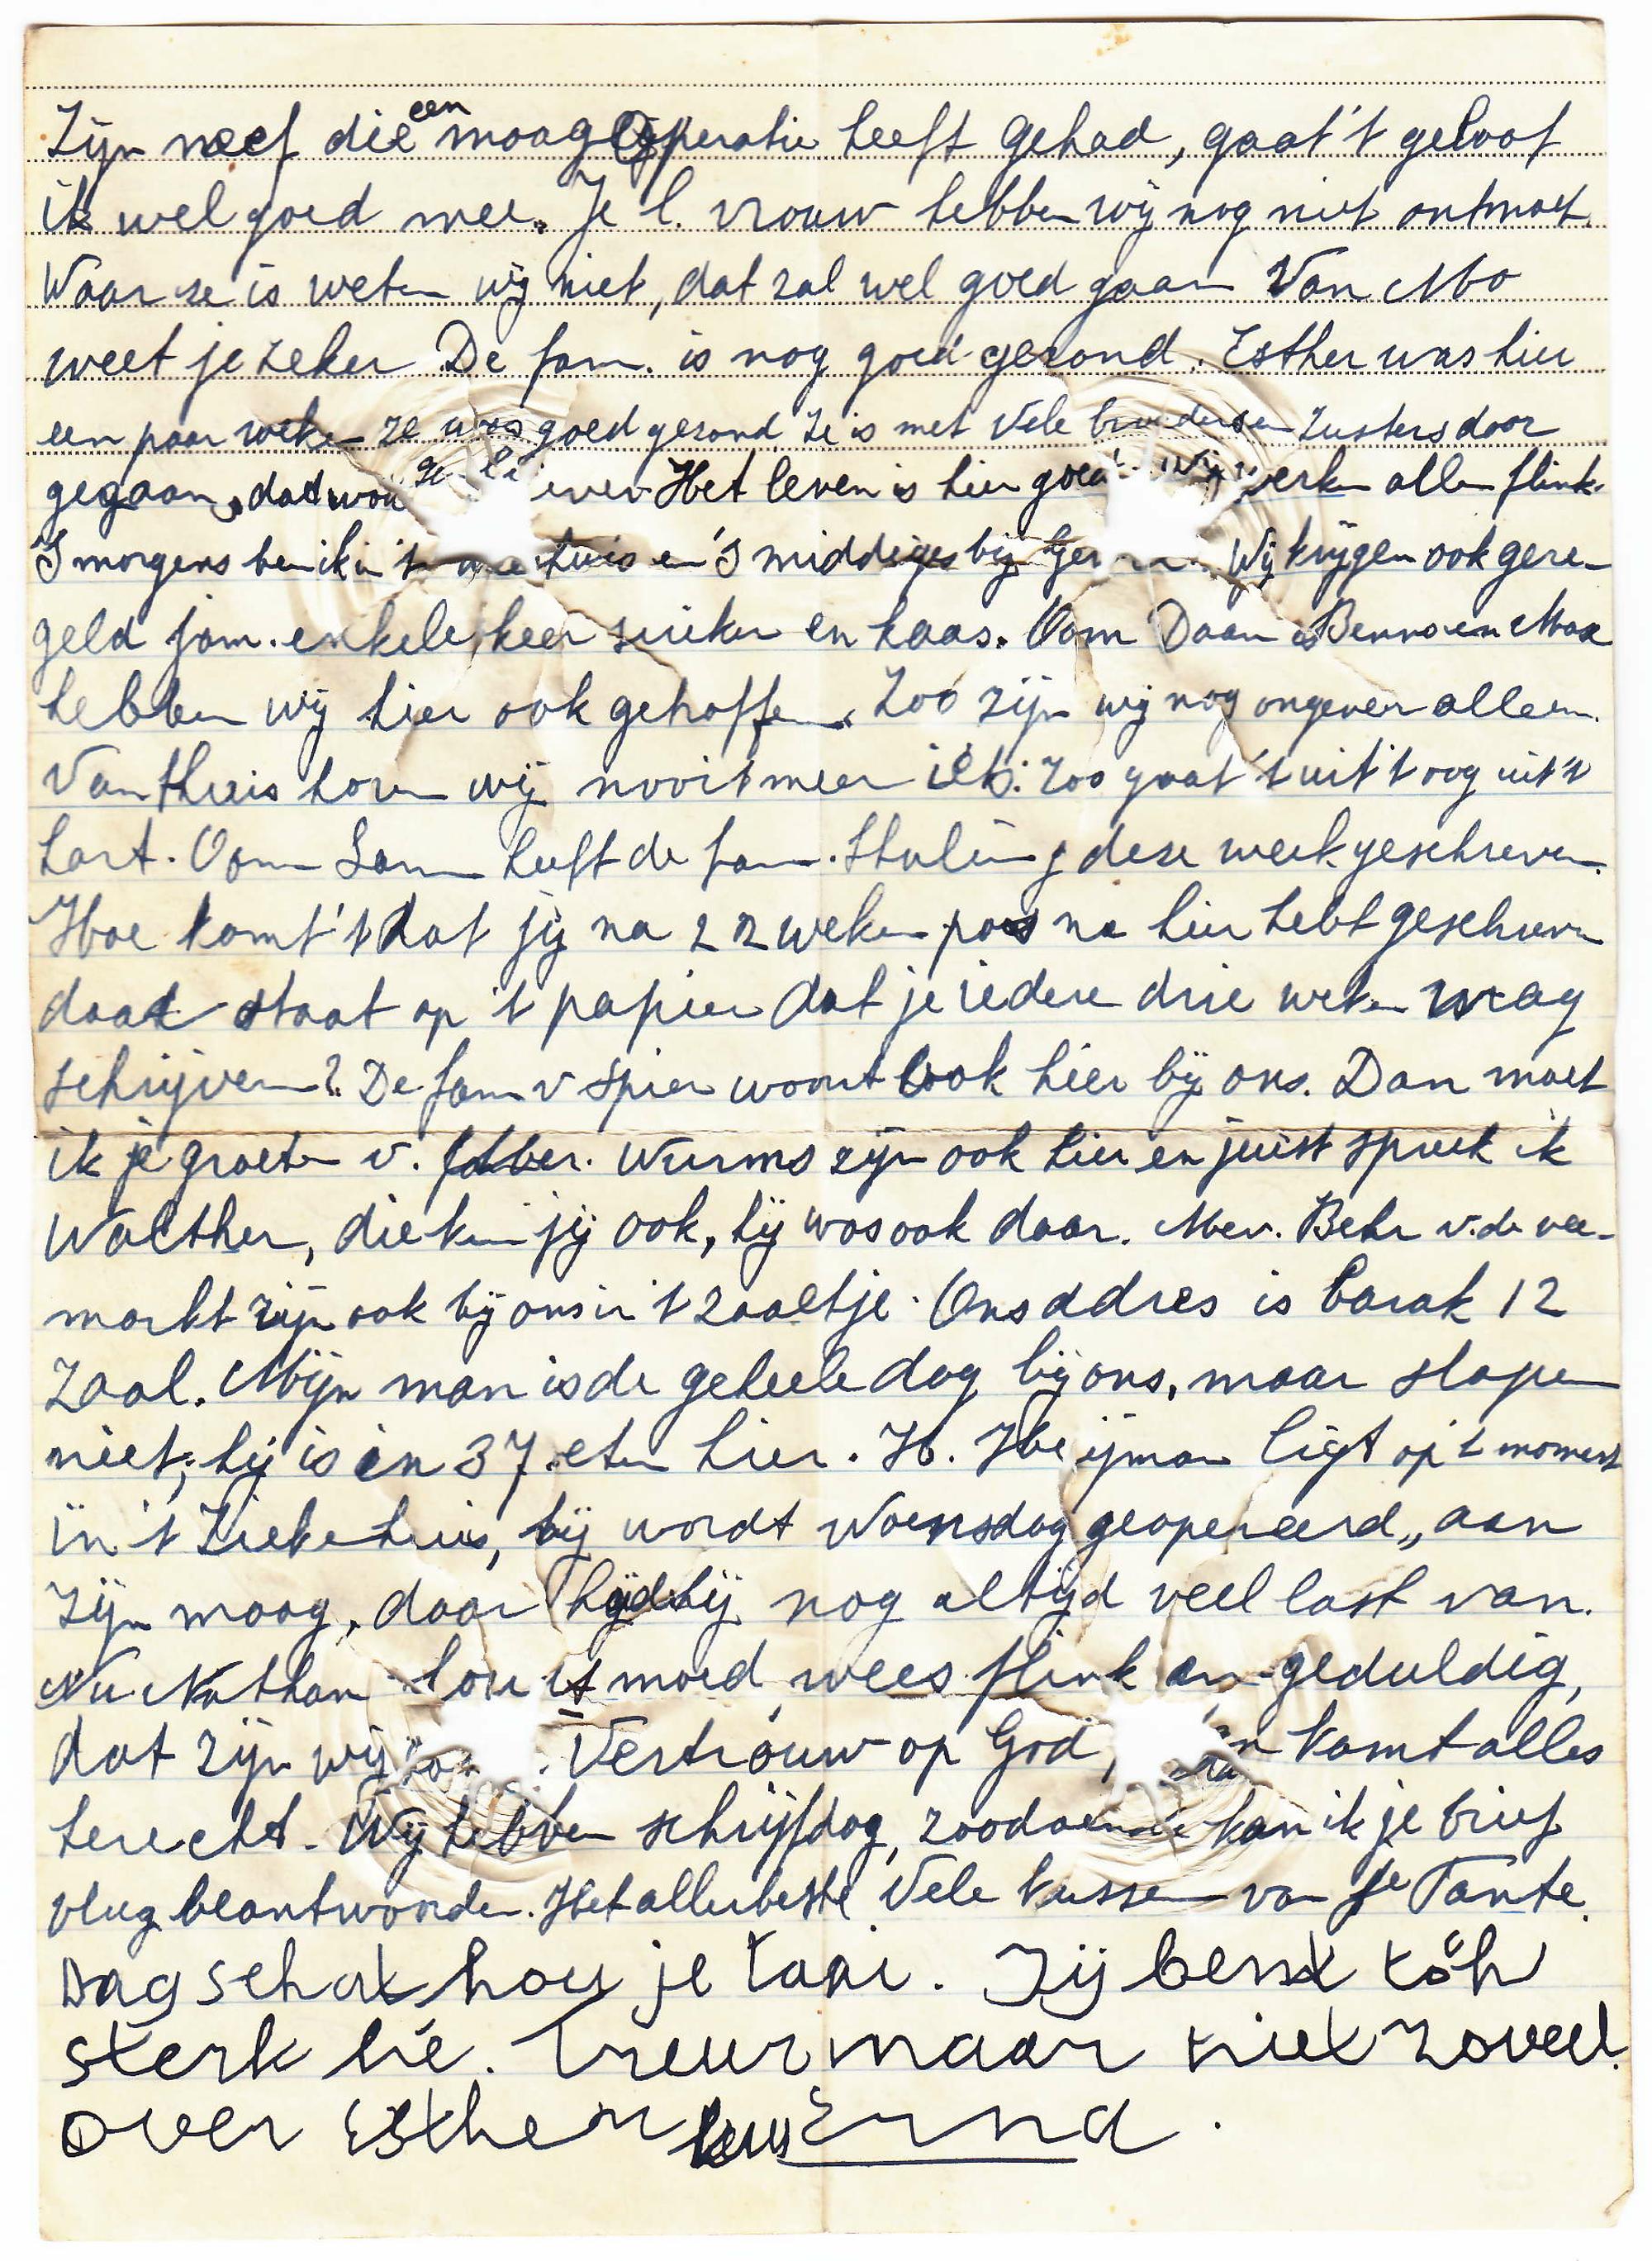 Zijn neef die een maag Operatie heeft gehad, gaat 't geloof
ik wel goed mee. Je l. vrouw hebben wij nog niet ontmoet,
Waar ze is weten wij niet, dat zal wel goed gaan Van Mo
weet je zeker De fam. is nog goed gezond. Esther was hier
een paar weken ze was goed gezond Ze is met Vele broeders en Zusters door
gegaan, dat wou Het leven is hier goed werken allen flink.
'S morgens ben ik in 't huis en 'S middags bij Wij krijgen ook gere-
geld jam. enkele keer suiker en kaas. Oom Daan Benno en Max
hebben wij hier ook getroffen. Zoo zijn wij nog ongeveer alleen.
Van thuis horen wij nooit meer iets. Zoo gaat 't uit 't oog uit 't
hart. Oom Sam heeft de fam. deze week geschreven.
Hoe komt 't dat jij na 22 weken pas na hier hebt geschreven
daar staat op 't papier dat je iedere drie weken mag
schrijven? De fam v Spier woont ook hier bij ons. Dan moet
ik je groeten v. Wurms zijn ook hier en juist spreek ik
Walther, die ken jij ook, hij was ook daar. Mev. Behr v. de vee-
markt zijn ook bij ons in 't zaaltje. Ons adres is barak 12
Zaal. Mijn man is de geheele dag bij ons, maar slapen
niet, hij is in 37. eten hier. H. Heijman ligt op 't moment
in 't Ziekehuis, hij wordt Woensdag geopereerd,, aan
Zijn maag, daar hij nog altijd veel last van.
Nu Nathan hou moed, wees flink en geduldig,
dat zijn wij Vertrouw op God, komt alles
terecht. Wij hebben schrijfdag, zoodoende kan ik je brief
vlug beantwoorden. Het allerbeste Vele kussen van Je Tante.
Dag schat hou je taai. Jij bent toh
sterk hé. Treur maar niet zoveel.
over Esther kus Erna.